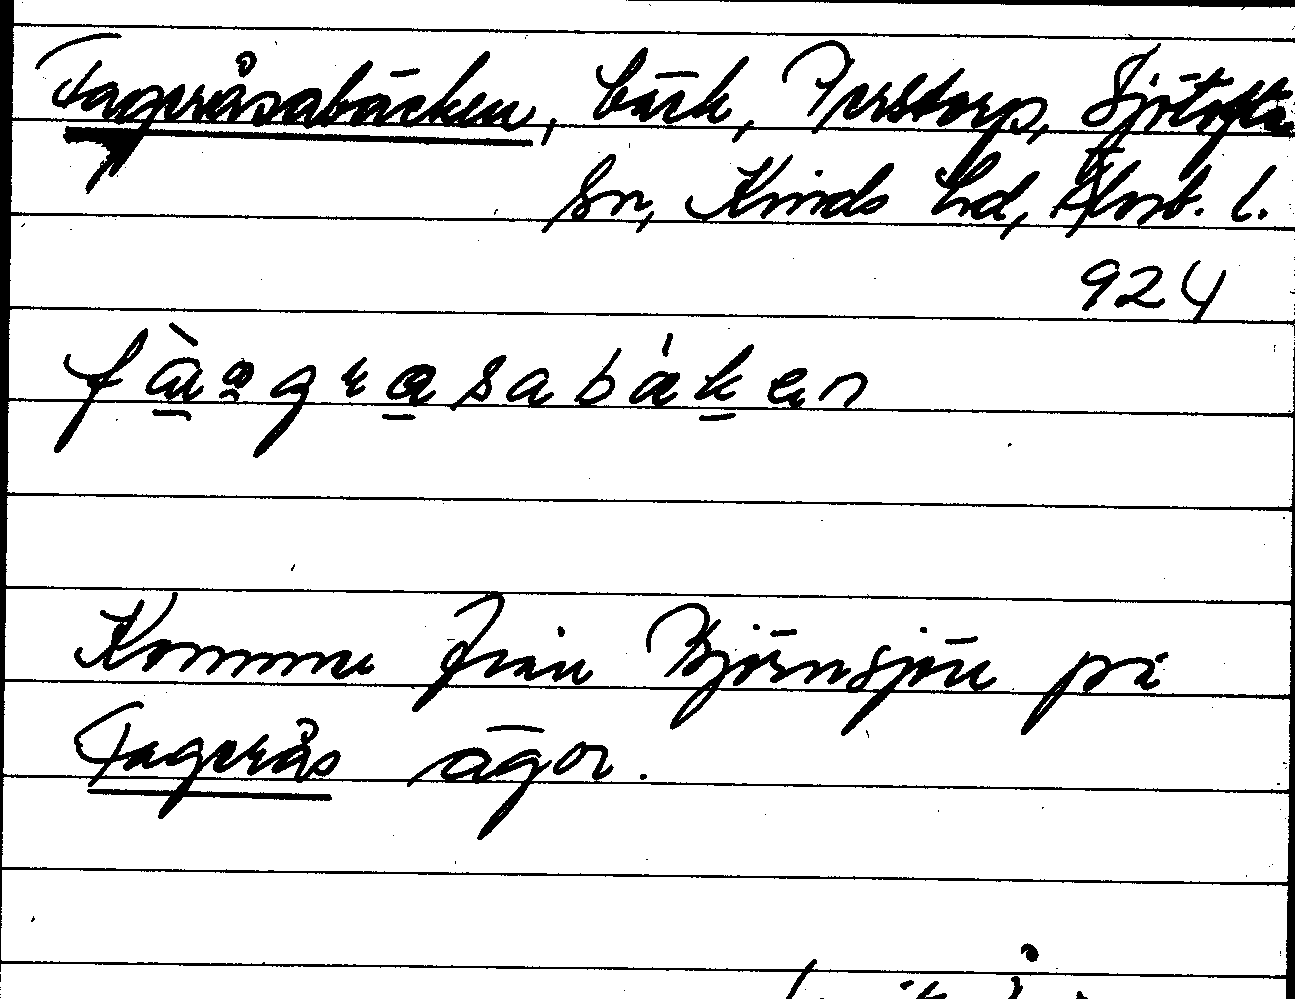 Fageråsabäcken, bäck, Perstorp, Sjötofta
sn, Kinds hd, Älvsb. l.
924
Kommer från Björnsjön på
Fagerås ägor.